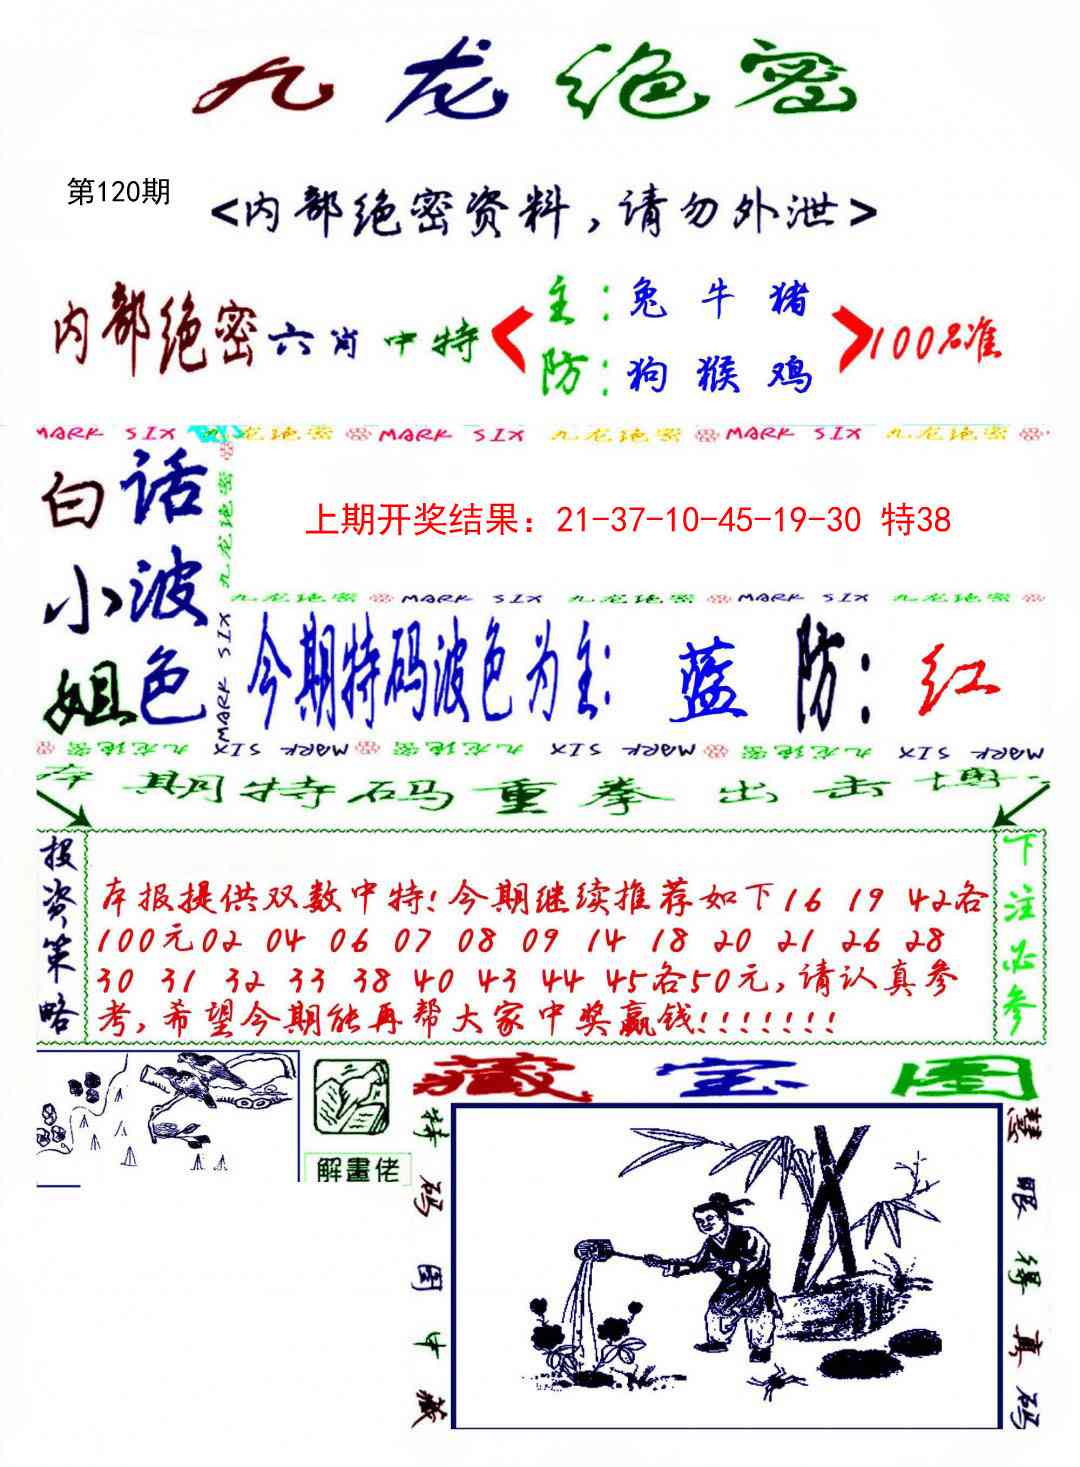 九龙绝密
第120期
<内部绝密资料,请勿外泄>
内部绝密六肖中特
主:兔 牛 猪
防:狗 猴 鸡
100%准
MARK SIX 九龙绝密 MARK SIX 九龙绝密 MARK SIX 九龙绝密
白小姐
话波色
九龙绝密
MARK SIX
上期开奖结果：21-37-10-45-19-30 特38
九龙绝密 MARK SIX 九龙绝密 MARK SIX 九龙绝密
今期特码波色为主: 蓝 防: 红
九龙绝密 MARK SIX 九龙绝密 MARK SIX 九龙绝密 MARK SIX
本期特码重拳出击博
投资策略
本报提供双数中特!今期继续推荐如下16 19 42各
100元02 04 06 07 08 09 14 18 20 21 26 28
30 31 32 33 38 40 43 44 45各50元,请认真参
考,希望今期能再帮大家中奖赢钱!!!!!!!
下注必参
解畫佬
藏宝图
特码图中藏
慧眼得真码